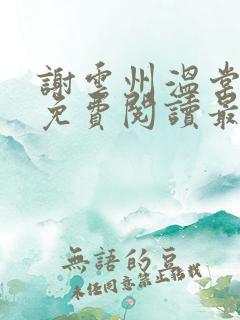 謝雲州溫常
免費閱讀最
無語的豆
未經同意禁止轉載